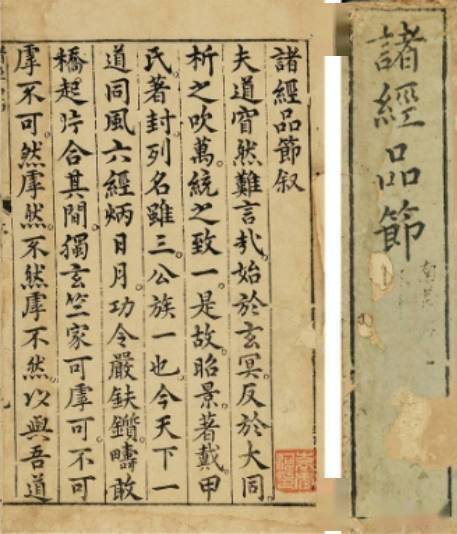 諸經品節
諸經品節叙
夫道窅然難言哉。始於玄冥。反於大同。
析之吹萬。統之致一。是故昭景著戴。甲
氏著封。列名雖三。公族一也。今天下一
道同風。六經炳日月。功令嚴鈇鑕。疇敢
橋起片合其間。獨玄竺家可虖可。不可
虖不可。然虖然。不然虖不然。以與吾道